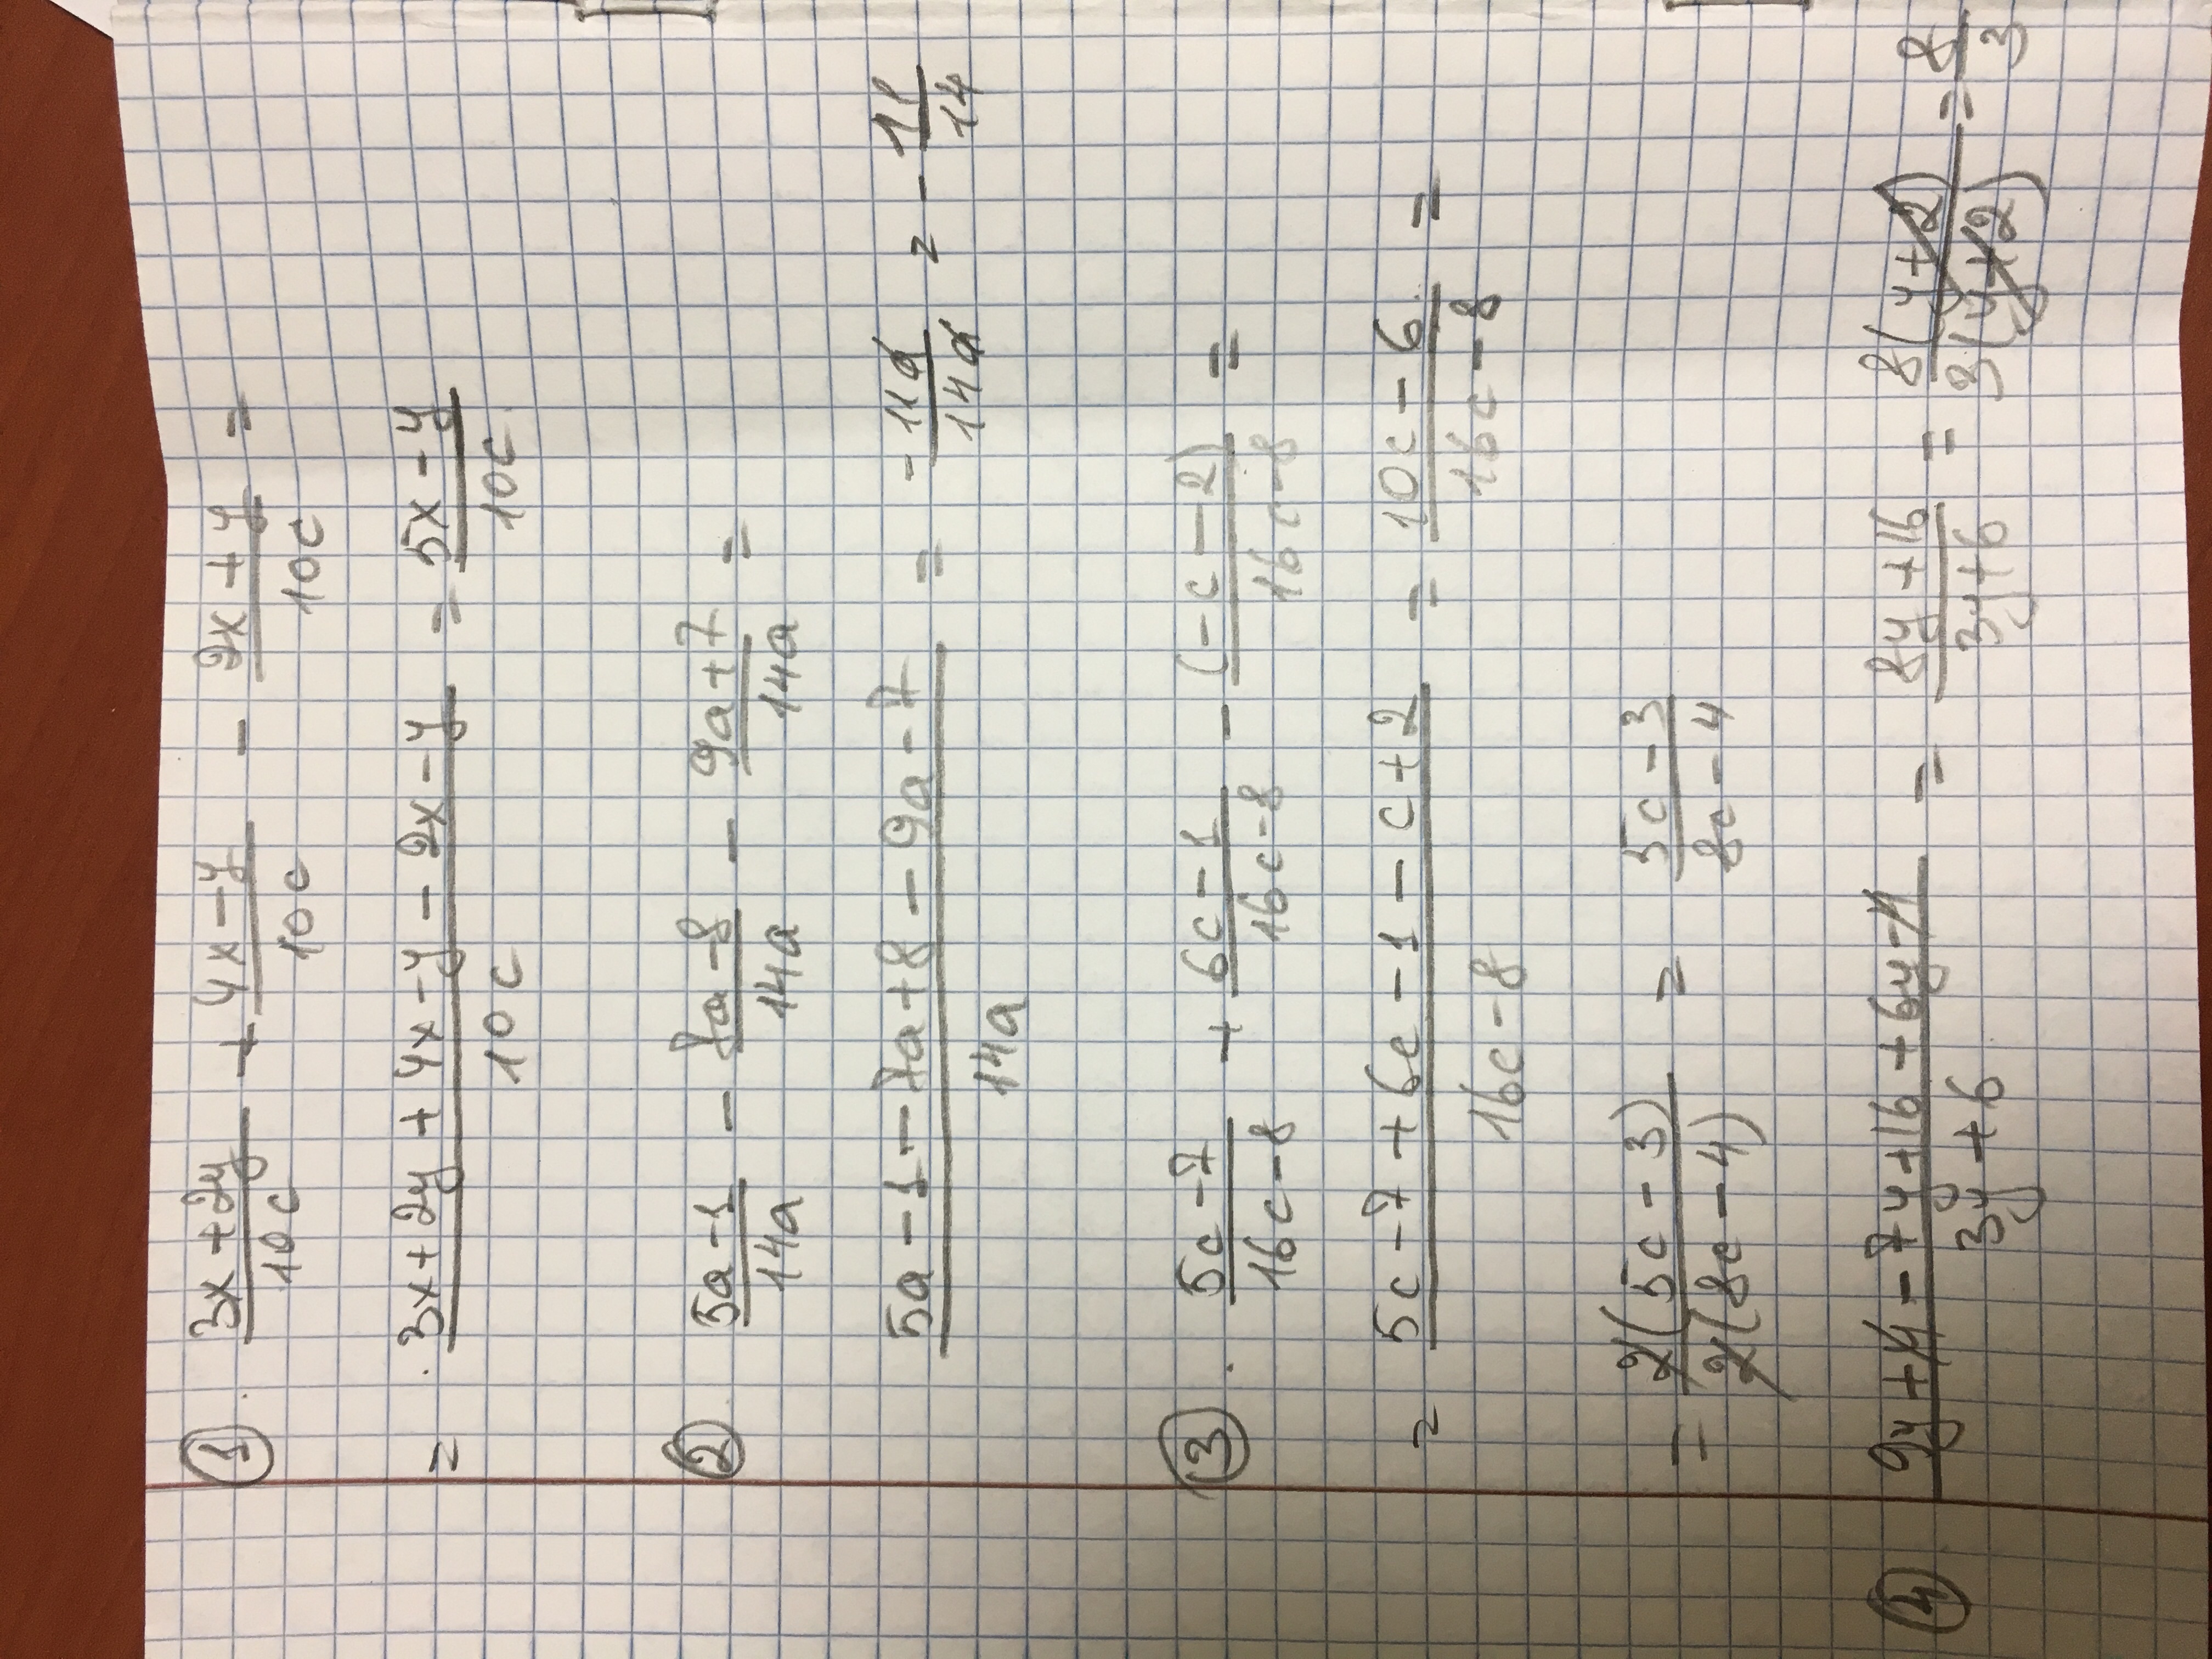 ① (3x+2y)/(10c) + (4x-y)/(10c) - (2x+y)/(10c) =
= (3x+2y+4x-y-2x-y)/(10c) = (5x-y)/(10c)
② (5a-1)/(14a) - (7a-8)/(14a) - (9a+7)/(14a) =
(5a-1-7a+8-9a-7)/(14a) = -(11a)/(14a) = -11/14
③ (5c-7)/(16c-8) + (6c-1)/(16c-8) - (-c-2)/(16c-8) =
= (5c-7+6c-1-c+2)/(16c-8) = (10c-6)/(16c-8) =
= 2(5c-3)/2(8c-4) = (5c-3)/(8c-4)
④ (9y+4-7y+16+6y-4)/(3y+6) = (8y+16)/(3y+6) = 8(y+2)/3(y+2) = 8/3